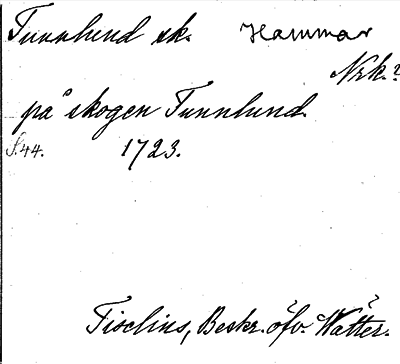 Tunnlund sk. Hammar
Nrk.?
på skogen Tunnlund.
S.44. 1723.
Tiselius, Beskr. öfv. Wätter.